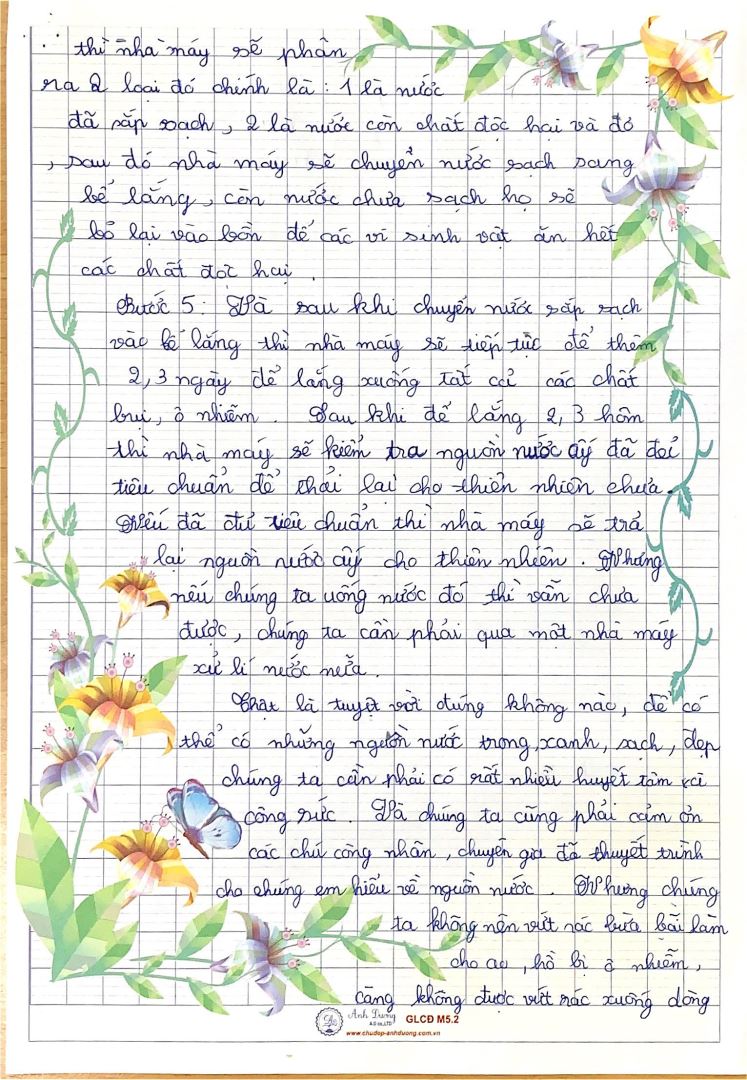 thì nhà máy sẽ phân
ra 2 loại đó chính là : 1 là nước
đã sắp sạch, 2 là nước còn chất độc hại và đỏ
, sau đó nhà máy sẽ chuyển nước sạch sang
bể lắng, còn nước chưa sạch họ sẽ
bỏ lại vào bồn để các vi sinh vật ăn hết
các chất độc hại.
Bước 5 : Và sau khi chuyển nước sắp sạch
vào bể lắng thì nhà máy sẽ tiếp tục để thêm
2, 3 ngày để lắng xuống tất cả các chất
bụi, ô nhiễm. Sau khi để lắng 2, 3 hôm
thì nhà máy sẽ kiểm tra nguồn nước ấy đã đủ
tiêu chuẩn để thải lại cho thiên nhiên chưa.
Nếu đã đủ tiêu chuẩn thì nhà máy sẽ trả
lại nguồn nước ấy cho thiên nhiên. Nhưng
nếu chúng ta uống nước đó thì vẫn chưa
được, chúng ta cần phải qua một nhà máy
xử lí nước nữa.
Thật là tuyệt vời đúng không nào, để có
thể có những nguồn nước trong, xanh, sạch, đẹp
chúng ta cần phải có rất nhiều huyết tâm và
công sức. Và chúng ta cũng phải cảm ơn
các chú công nhân, chuyên gia đã thuyết trình
cho chúng em hiểu về nguồn nước. Nhưng chúng
ta không nên vứt rác bừa bãi làm
cho ao, hồ bị ô nhiễm,
càng không được vứt rác xuống dòng
Ánh Dương
A.D co.,LTD
GLCĐ M5.2
www.chudep-anhduong.com.vn